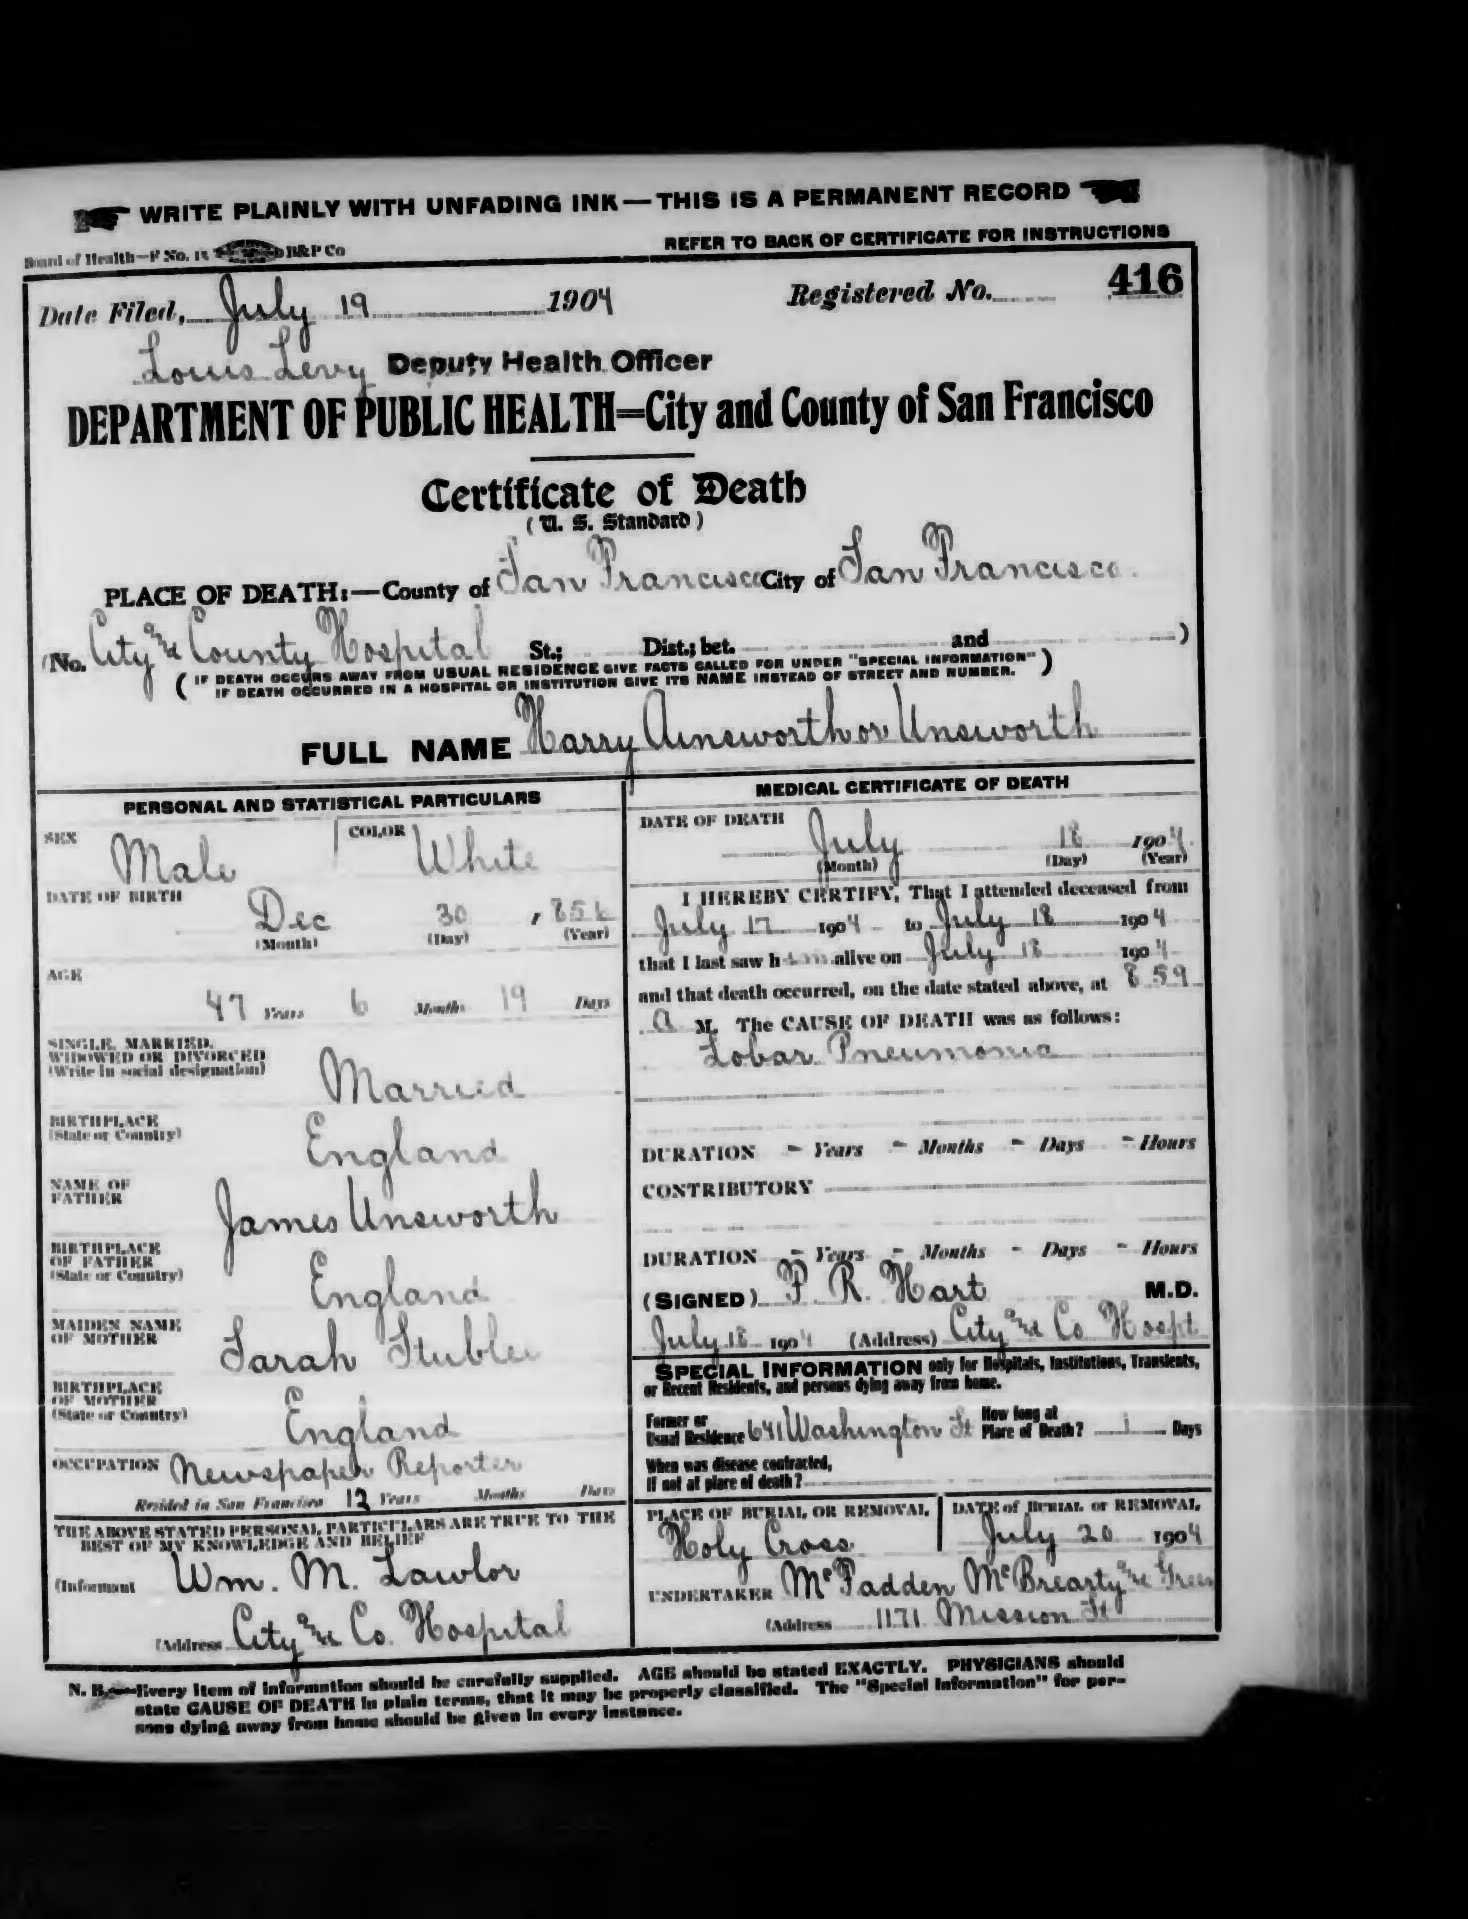 WRITE PLAINLY WITH UNFADING INK—THIS IS A PERMANENT RECORD
Board of Health—F No. 15 B&P Co
REFER TO BACK OF CERTIFICATE FOR INSTRUCTIONS
Date Filed, July 19 1904 Registered No. 416
Louis Levy Deputy Health Officer
DEPARTMENT OF PUBLIC HEALTH=City and County of San Francisco
Certificate of Death
(U. S. Standard)
PLACE OF DEATH:—County of San Francisco City of San Francisco
(No. City and County Hospital St.; Dist.; bet. and )
( IF DEATH OCCURS AWAY FROM USUAL RESIDENCE GIVE FACTS CALLED FOR UNDER "SPECIAL INFORMATION" )
IF DEATH OCCURRED IN A HOSPITAL OR INSTITUTION GIVE ITS NAME INSTEAD OF STREET AND NUMBER.
FULL NAME Harry Ainsworth or Unsworth
PERSONAL AND STATISTICAL PARTICULARS
SEX Male COLOR White
DATE OF BIRTH Dec 30 , 856
(Month) (Day) (Year)
AGE
47 Years 6 Months 19 Days
SINGLE, MARRIED,
WIDOWED OR DIVORCED
(Write in social designation) Married
BIRTHPLACE
(State or Country) England
NAME OF
FATHER James Unsworth
BIRTHPLACE
OF FATHER
(State or Country) England
MAIDEN NAME
OF MOTHER Sarah
BIRTHPLACE
OF MOTHER
(State or Country) England
OCCUPATION Newspaper Reporter
Resided in San Francisco 12 Years Months Days
THE ABOVE STATED PERSONAL PARTICULARS ARE TRUE TO THE
BEST OF MY KNOWLEDGE AND BELIEF
(Informant Wm. M. Lawlor
(Address City and Co. Hospital
MEDICAL CERTIFICATE OF DEATH
DATE OF DEATH
July 18 1904
(Month) (Day) (Year)
I HEREBY CERTIFY, That I attended deceased from
July 17 1904 to July 18 1904
that I last saw him alive on July 18 1904
and that death occurred, on the date stated above, at 8 59
A M. The CAUSE OF DEATH was as follows:
Lobar Pneumonia
DURATION - Years - Months - Days - Hours
CONTRIBUTORY
DURATION - Years - Months - Days - Hours
(SIGNED) P. R. Hart M.D.
July 18 1904 (Address) City and Co Hospt
SPECIAL INFORMATION only for Hospitals, Institutions, Transients,
or Recent Residents, and persons dying away from home.
Former or
Usual Residence 641 Washington St How long at
Place of Death? 1 Days
When was disease contracted,
If not at place of death?
PLACE OF BURIAL OR REMOVAL DATE of BURIAL or REMOVAL
Holy Cross July 20 1904
UNDERTAKER McFadden McBrearty and Green
(Address 1171 Mission St
N. B.—Every item of information should be carefully supplied. AGE should be stated EXACTLY. PHYSICIANS should
state CAUSE OF DEATH in plain terms, that it may be properly classified. The "Special Information" for per-
sons dying away from home should be given in every instance.